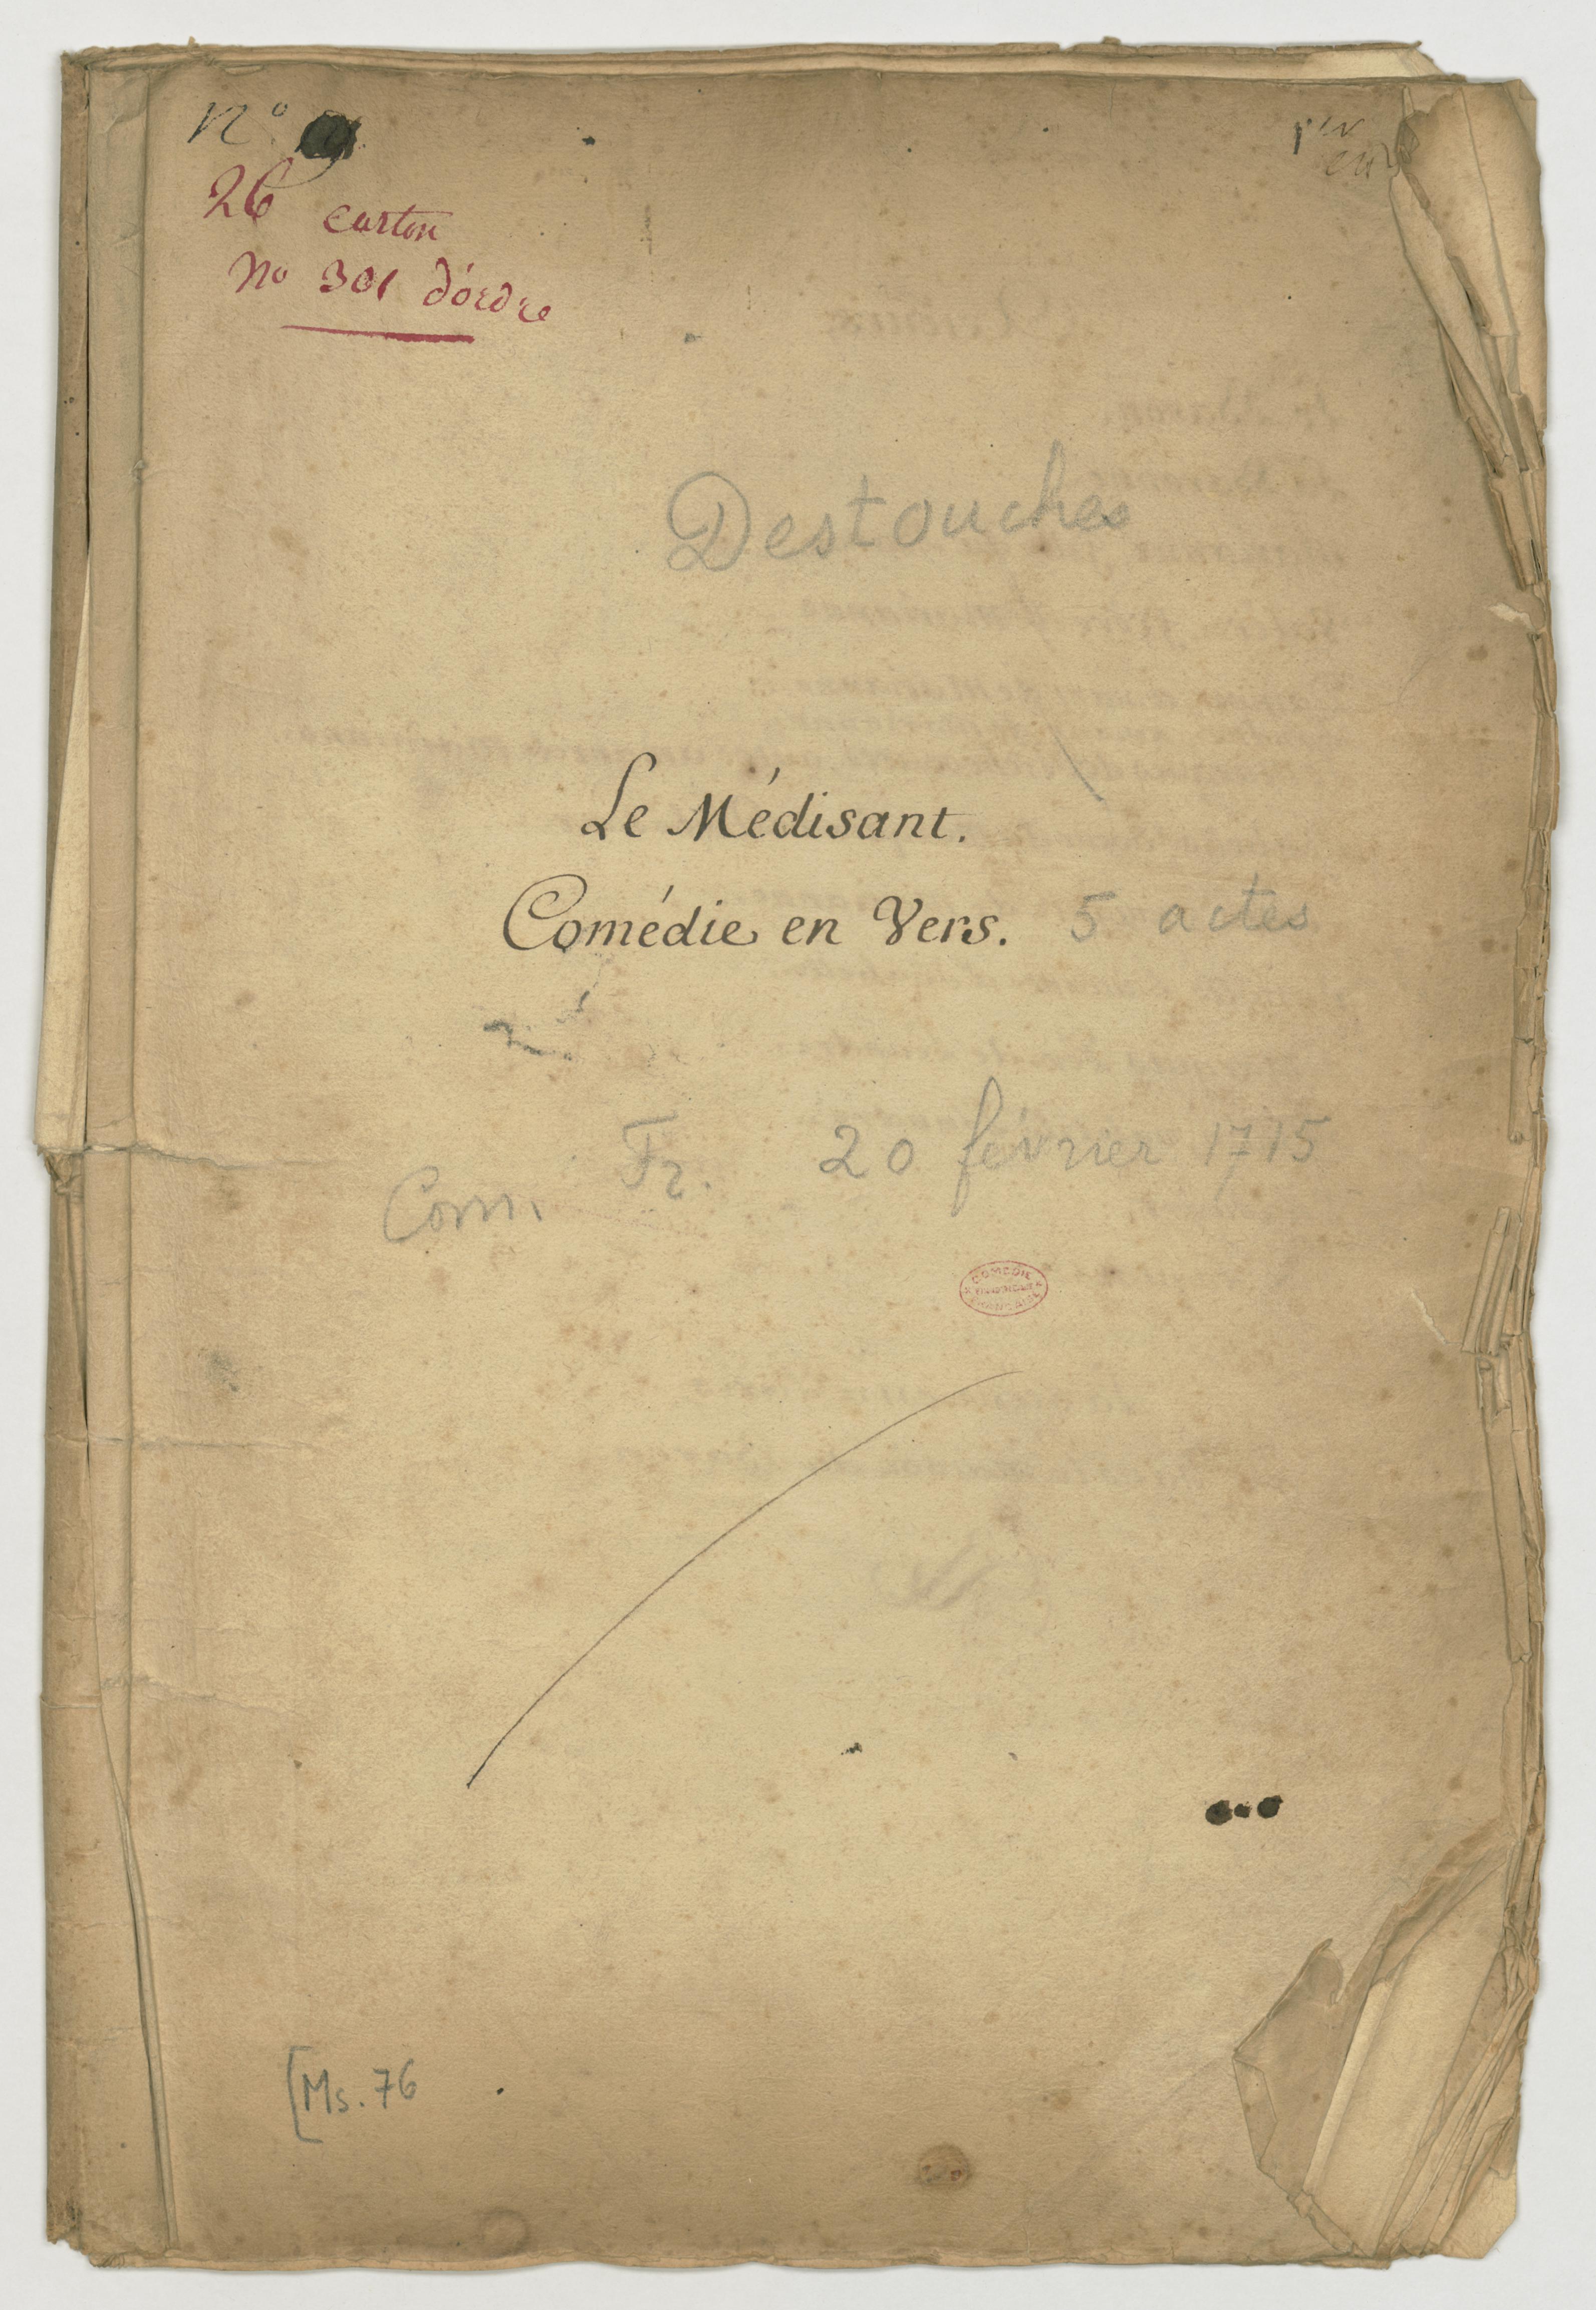 N°
26 carton
No 301 d'ordre
Destouches
Le Médisant.
Comédie en Vers. 5 actes
Com. Fr. 20 février 1715
COMÉDIE
FRANÇAISE
[Ms. 76